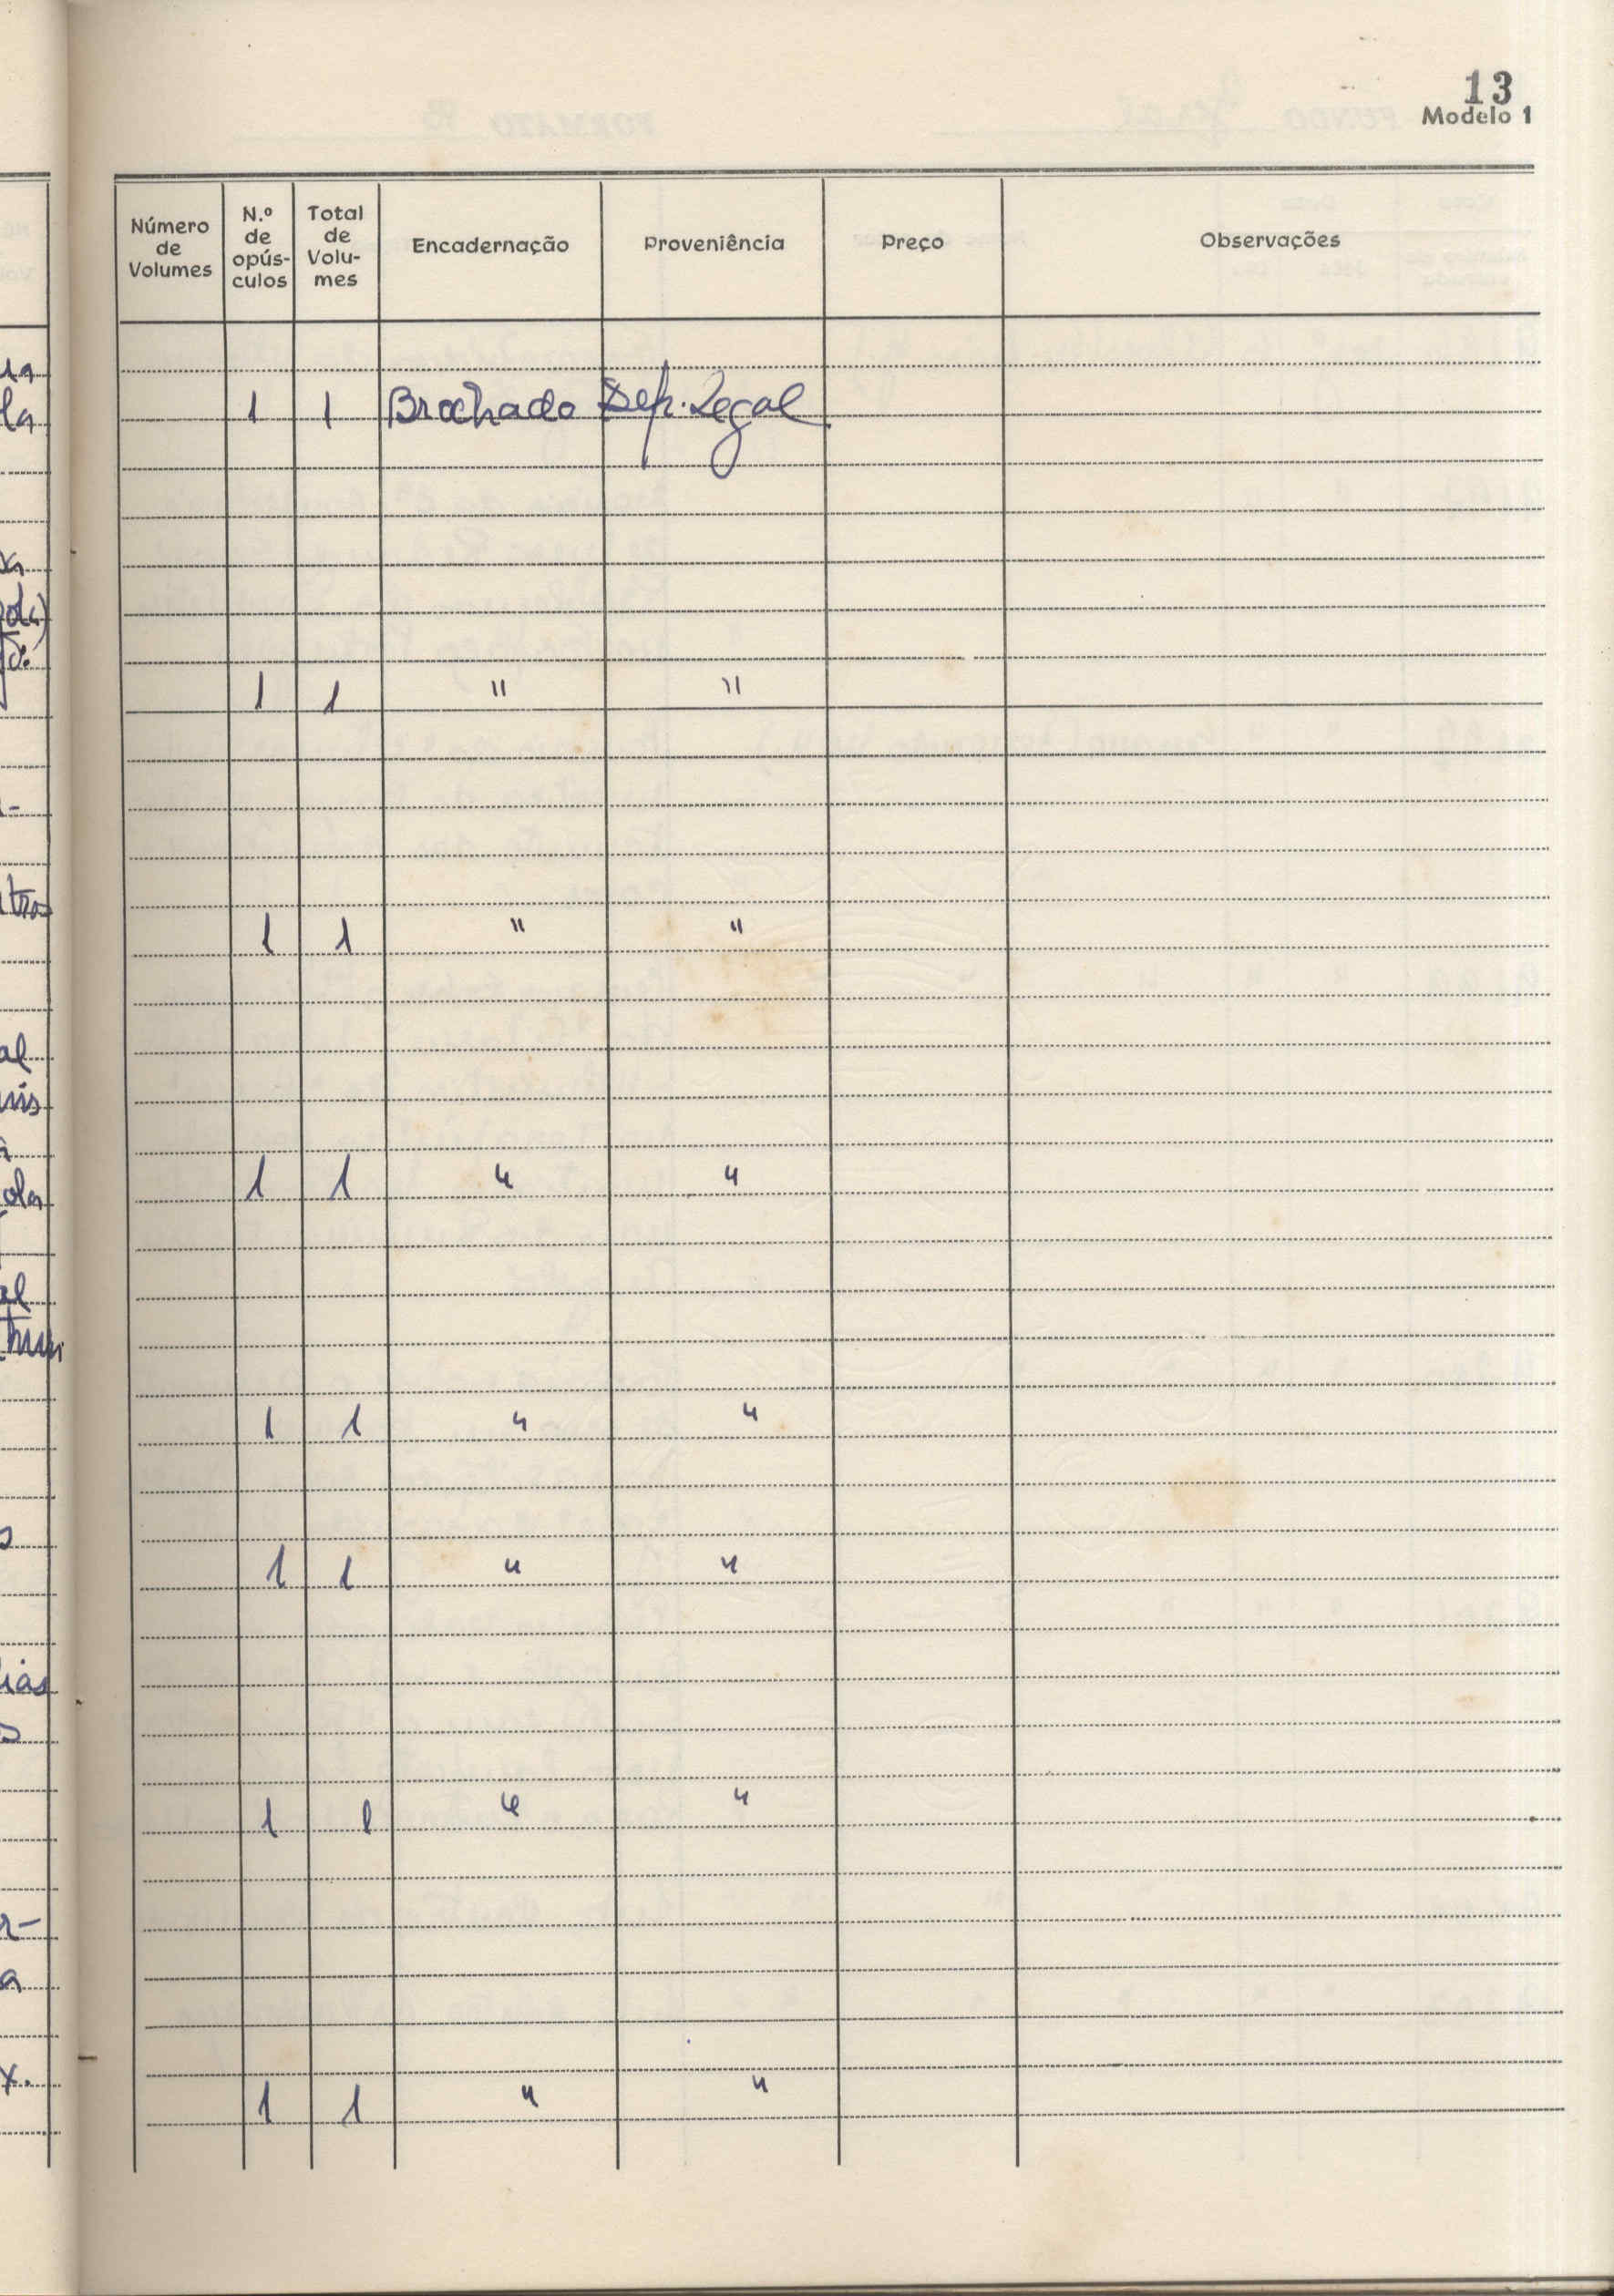 13
Modelo 1
Número de Volumes
N.º de opús-culos
Total de Volu-mes
Encadernação
Proveniência
Preço
Observações
1 1 Brochado Dep. Legal
1 1 " "
1 1 " "
1 1 " "
1 1 " "
1 1 " "
1 1 " "
1 1 " "